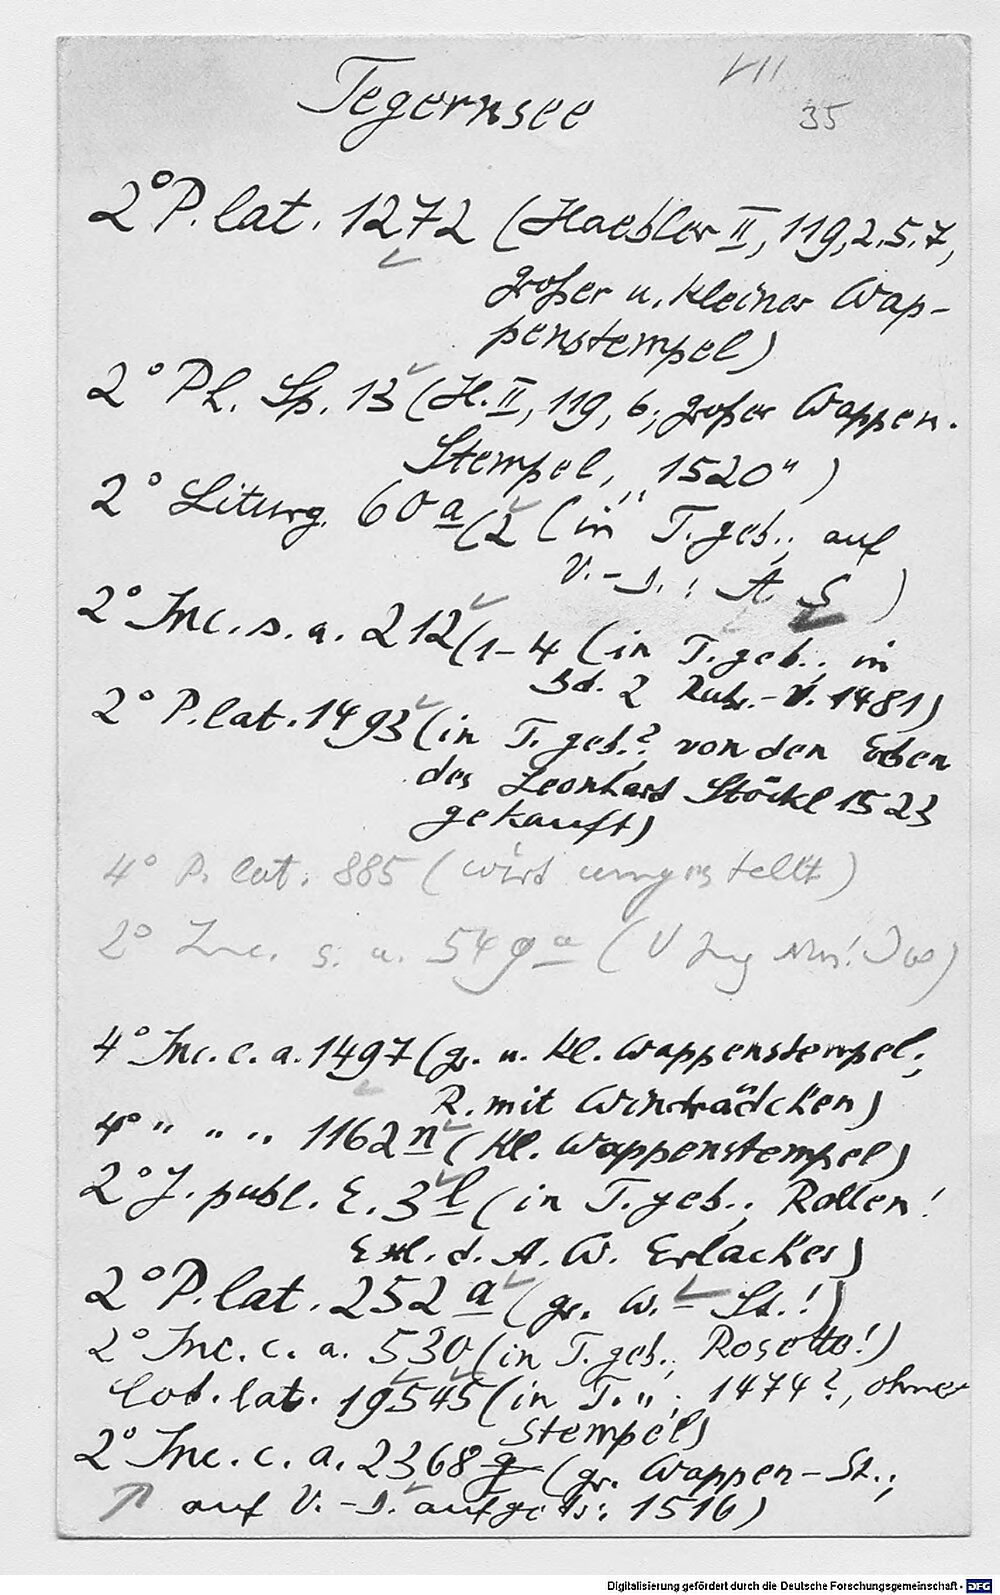 VII
Tegernsee
35
2° P. lat. 1272 (Haebler II, 119, 2. 5. 7,
großer u. kleiner Wap-
penstempel)
2° Ph. Sp. 13 (H. II, 119, 6; großer Wappen-
Stempel, „1520“)
2° Liturg. 60a/2 (in T. geb.; auf
V.-D.: A S)
2° Inc. s. a. 212/1-4 (in T. geb.; in
Bd. 2 Rubr.-V. 1481)
2° P. lat. 1493 (in T. geb.?; von den Erben
des Leonhard Stöckl 1523
gekauft)
4° P. lat. 885 (wird umgestellt)
2° Inc. s. a. 549a (V
4° Inc. c. a. 1497 (gr. u. kl. Wappenstempel;
R. mit Windrädchen)
4° " " " 1162n (kl. Wappenstempel)
2° J. publ. E. 3l (in T. geb.; Rollen!
Exl. d. A. W. Erlacher)
2° P. lat. 252a (gr. W.-St.!)
2° Inc. c. a. 530 (in T. geb.; Rosette!)
Cod. lat. 19545 (in T. "; 1474?, ohne
Stempel)
2° Inc. c. a. 2368 g (gr. Wappen-St.;
auf V.-D. aufgeb.: 1516)
Digitalisierung gefördert durch die Deutsche Forschungsgemeinschaft - DFG